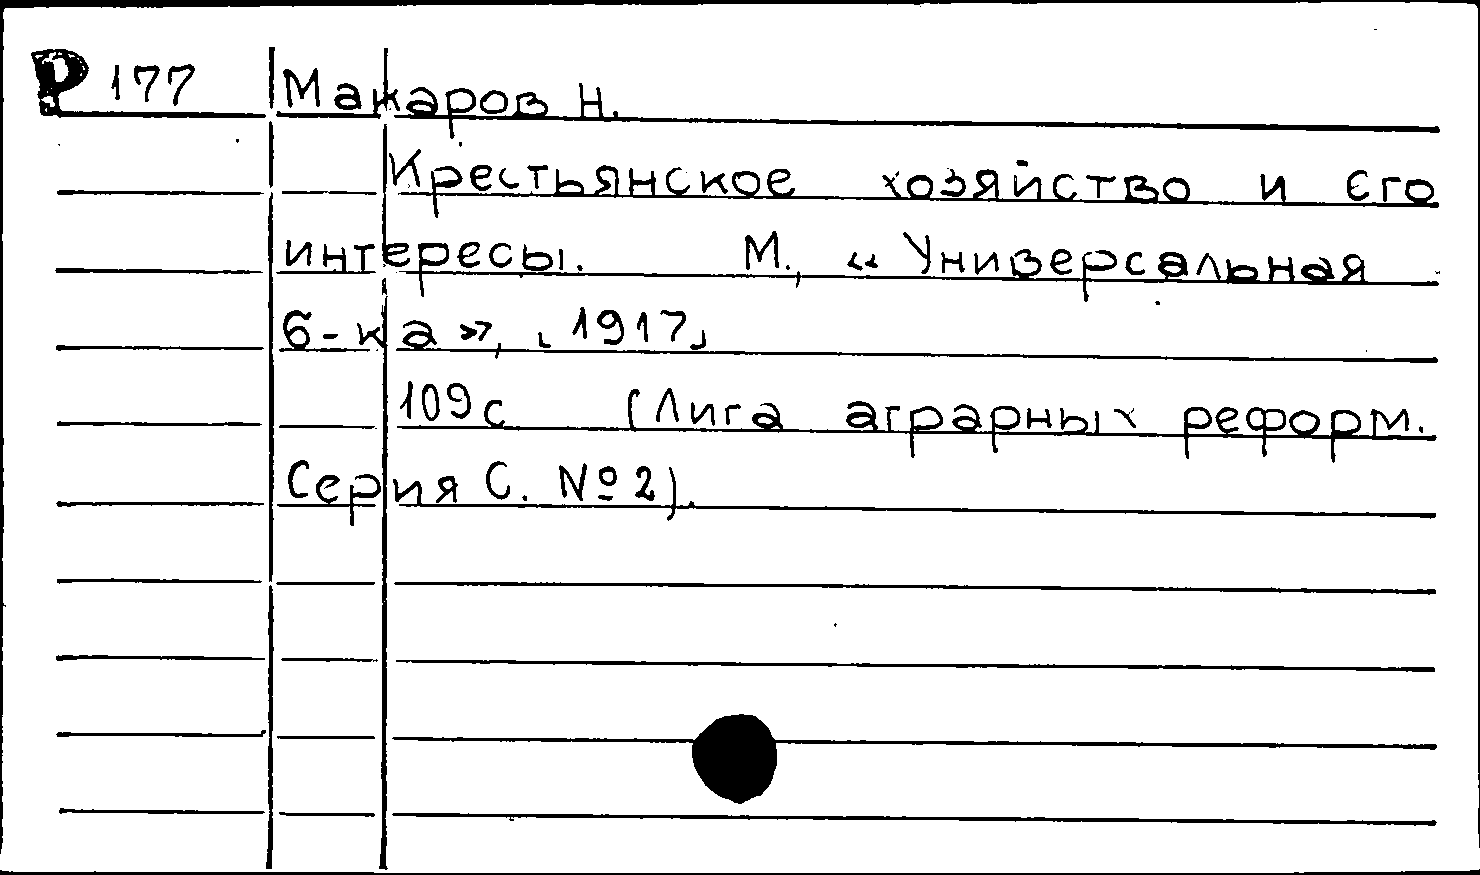 Р 177 Макаров Н.
Крестьянское хозяйство и его
интересы. М., «Универсальная
б-ка», [1917]
109с (Лига аграрных реформ.
Серия С. №2).